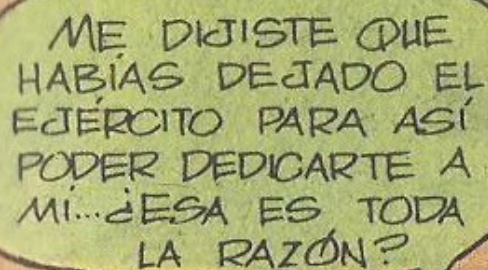 ME DIJISTE QUE
HABÍAS DEJADO EL
EJÉRCITO PARA ASÍ
PODER DEDICARTE A
MI...¿ESA ES TODA
LA RAZÓN?